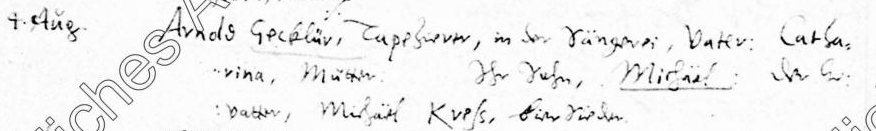 4. Aug. Arnold Gecklür, Tapezierer, in der Sängerei, Vater: Catha=
rina, Mutter. Ihr Sohn, Michäel: der Ge:
:vatter, Michäel Kreß, bier Sieder.